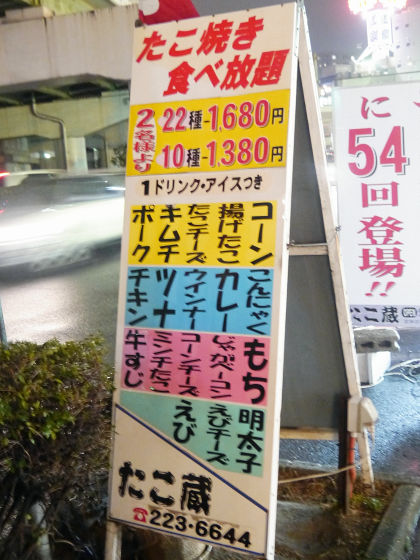 たこ焼き
食べ放題
2名様より
22種-1,680円
10種-1,380円
1ドリンク・アイスつき
コーン
揚げたこ
たこチーズ
キムチ
ポーク
こんにゃく
カレー
ウインナー
ツナ
チキン
もち
じゃがベーコン
コーンチーズ
ミンチたこ
牛すじ
明太子
えびチーズ
えび
たこ蔵
☎223-6644
に
54
回登場!!
たこ蔵